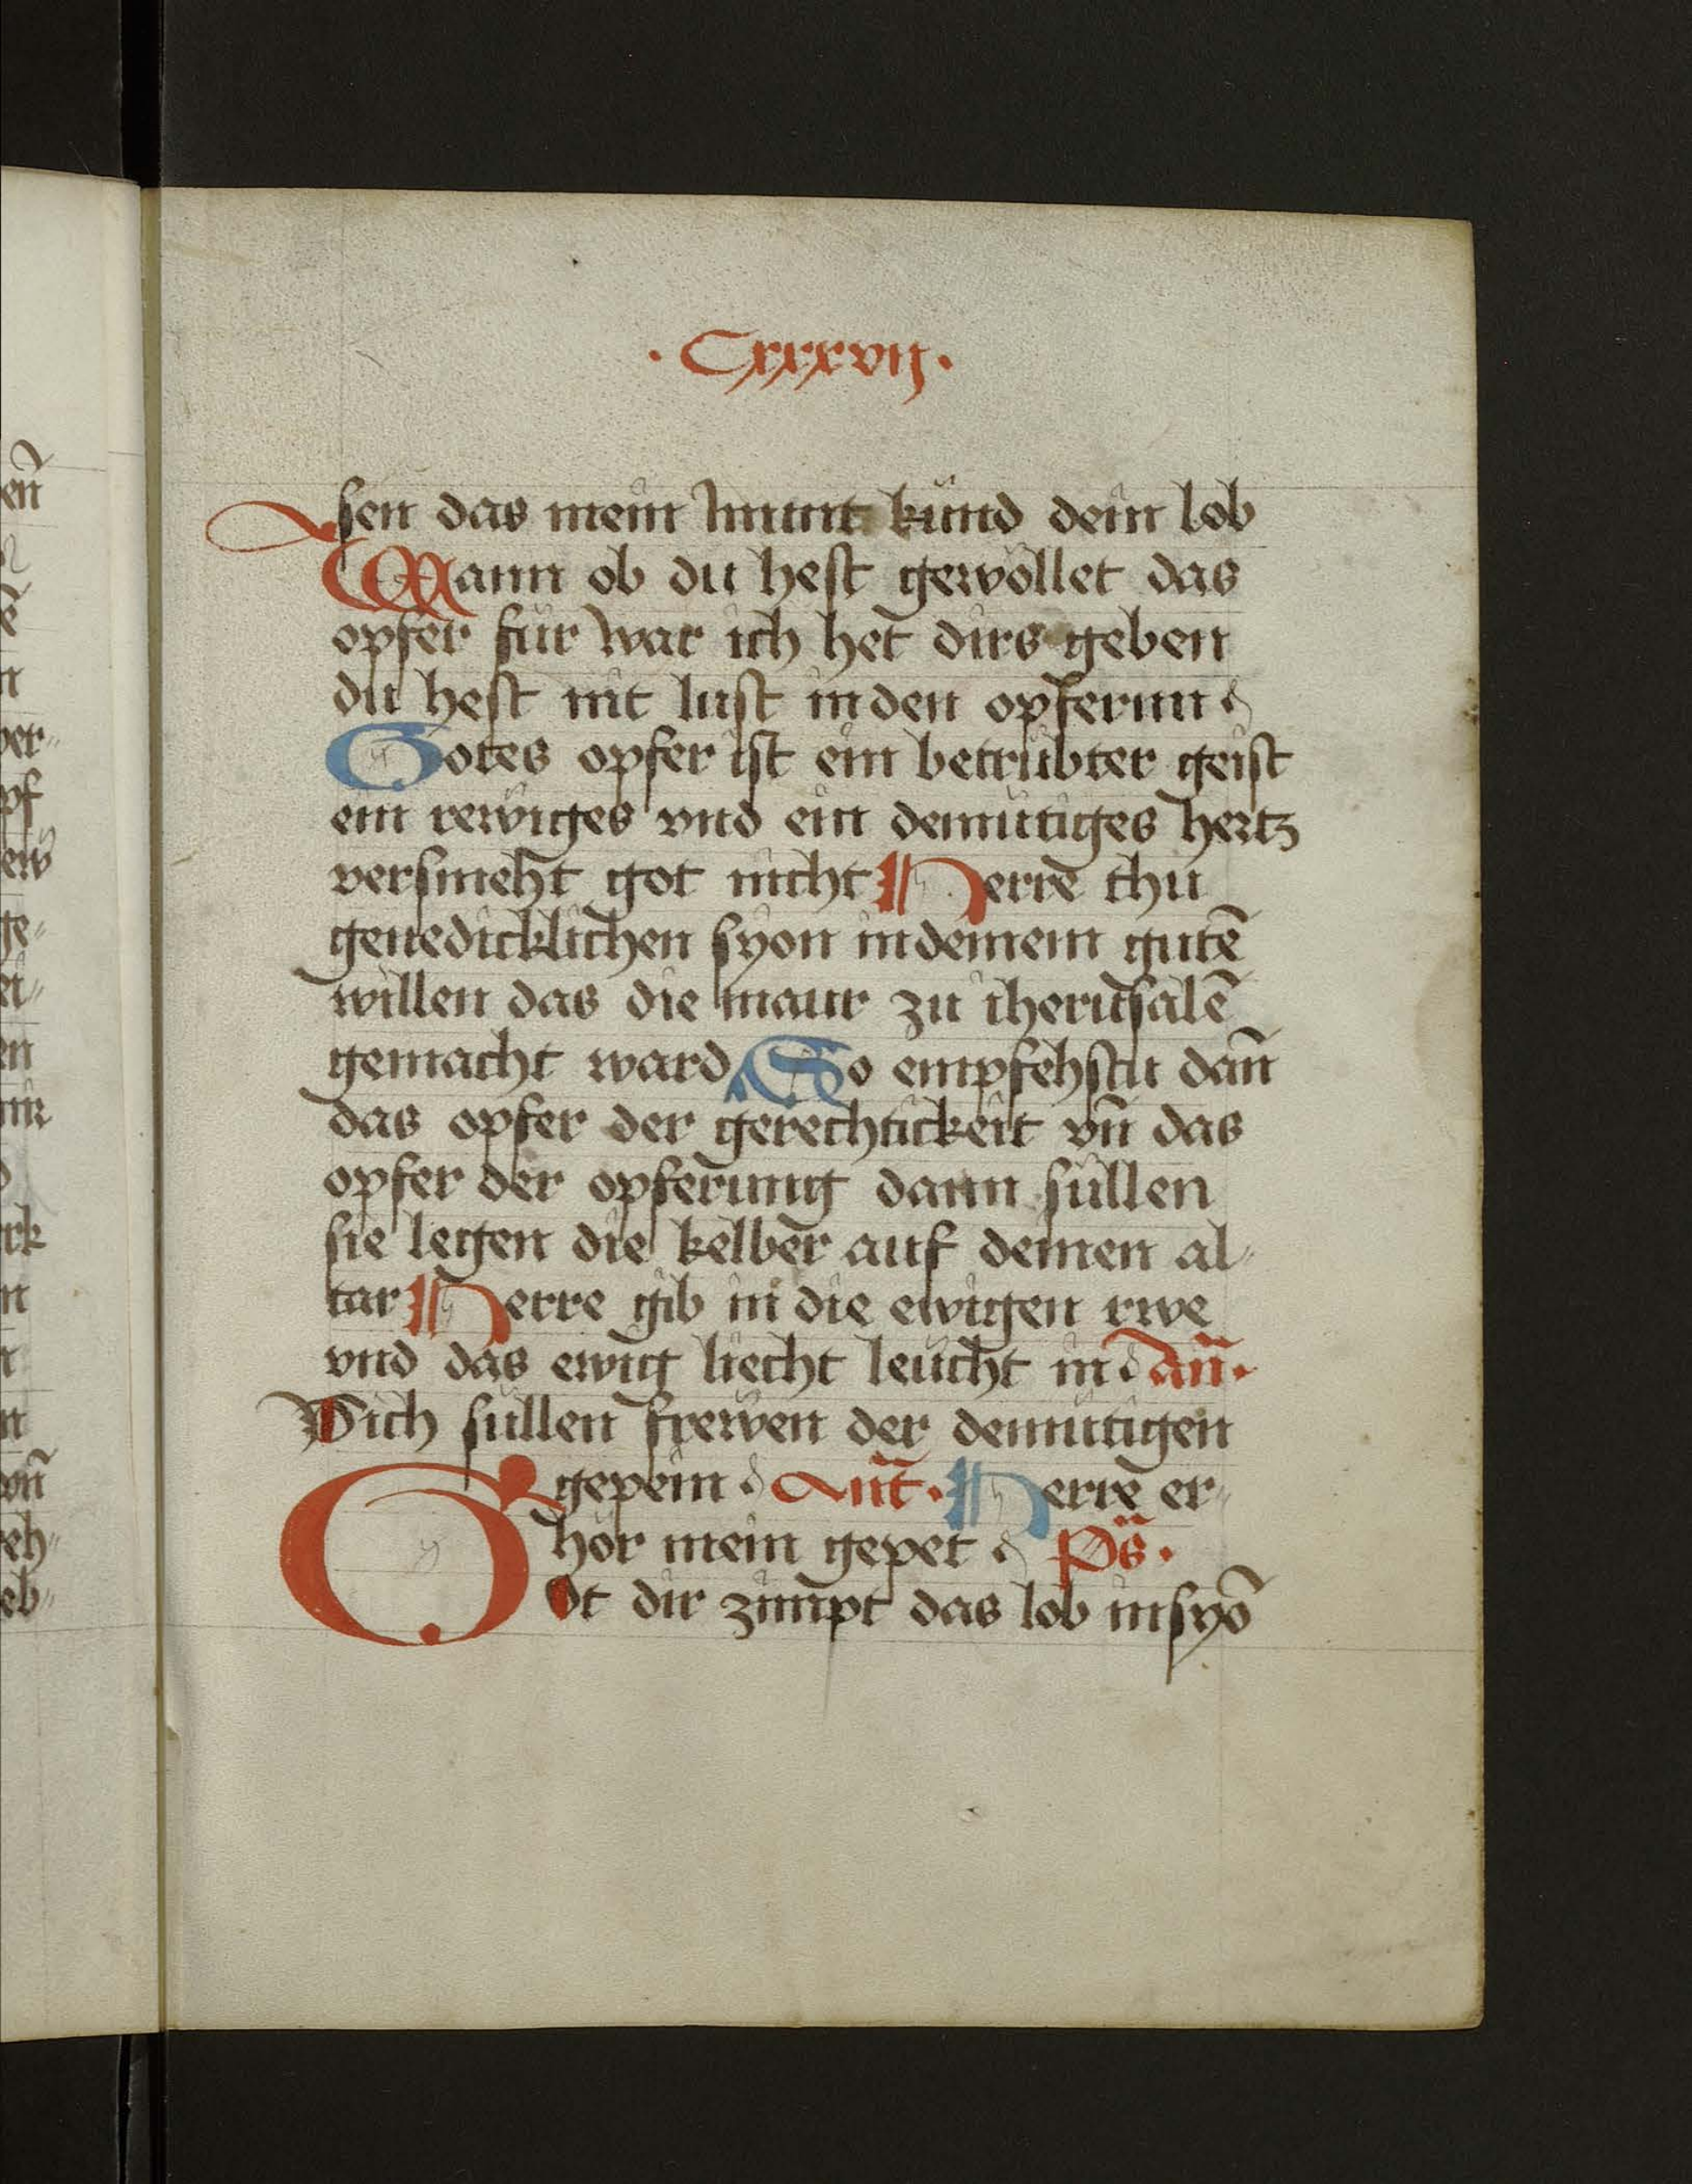 · Cxxxvij ·
sen das mein munt kund dein lob
Wann ob du hest gewöllet das
opfer für war ich het dirs geben
du hest nit lust in den opferun
Gotes opfer ist ein betrübter geist
ein rewiges vnd ein demütiges hertz
versmeht got nicht Herre thu
genedicklichen syon in deinem gutē
willen das die maur zu iherusalē
gemacht ward So empfehstu dan̄
das opfer der gerechtickeit vn̄ das
opfer der opferung dann süllen
sie legen die kelber auf deinen al-
tar Herre gib in die ewigen rwe
vnd das ewig liecht leücht in an̄·
Dich süllen frewen der demütigen
gepein Ant̄· Herre er-
hör mein gepet Ps̄·
Got dir zimpt das lob in syō